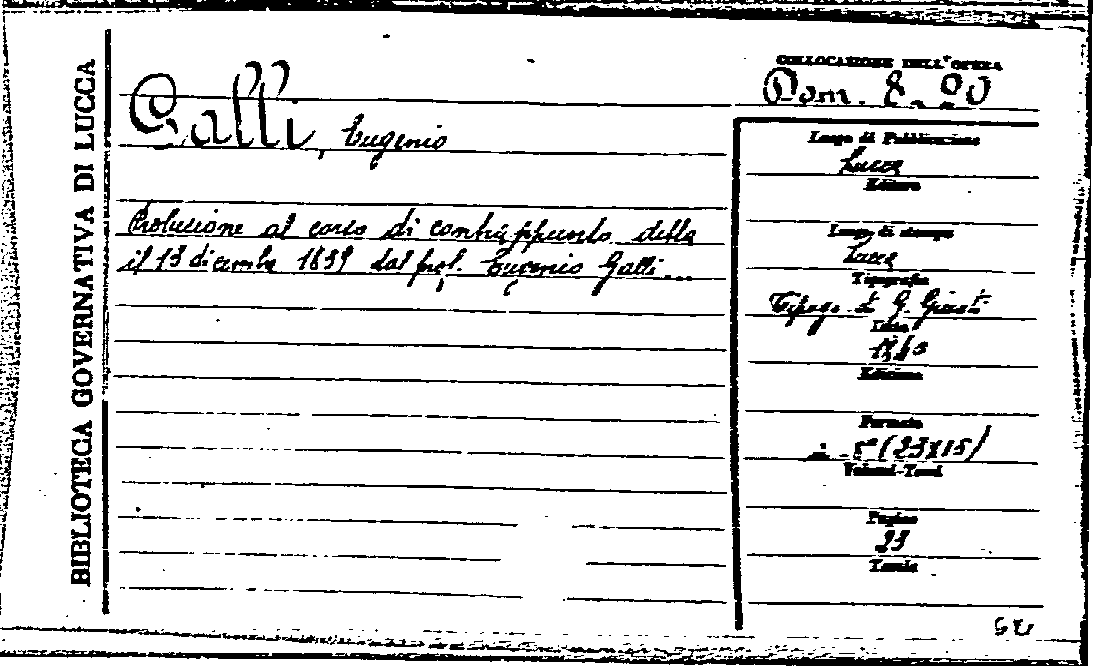 BIBLIOTECA GOVERNATIVA DI LUCCA
Galli, Eugenio
Prolusione al corso di contrappunto detta
il 13 dicembre 1899 dal prof. Eugenio Galli...
COLLOCAZIONE DELL'OPERA
Dom. 8. 20
Luogo di Pubblicazione
Lucca
Editore
Luogo di stampa
Lucca
Tipografia
Tipogr. di G. Giusti
Data
Edizione
Formato
in 8º (23x15)
Volumi-Tomi
Pagine
23
Tavole